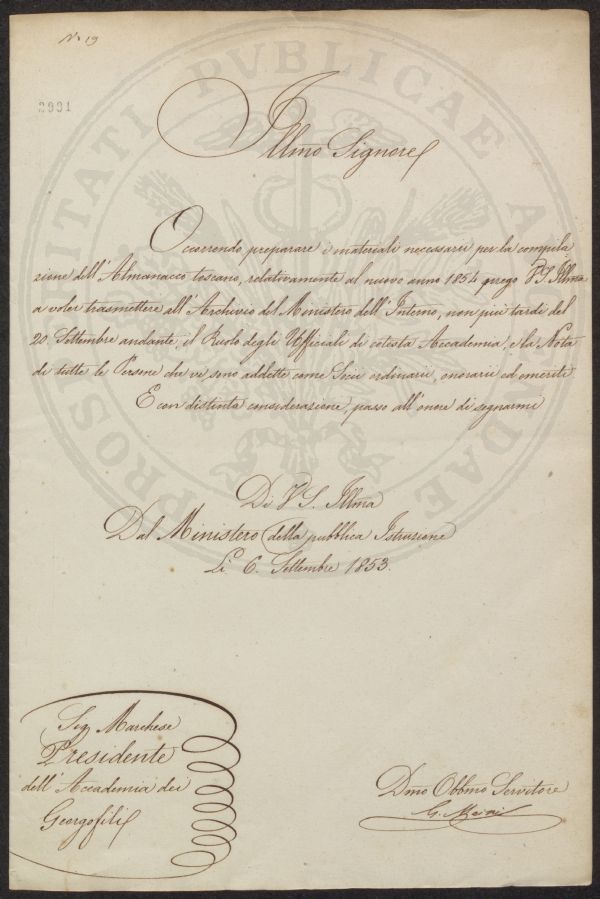 No 19
2991
PROSPERITATI PVBLICAE AVGENDAE
Illmo Signore
Occorrendo preparare i materiali necessarii per la compila
zione dell'Almanacco toscano, relativamente al nuovo anno 1854, prego V. S. Illma
a voler trasmettere all'Archivio del Ministero dell'Interno, non più tardi del
20 Settembre andante, il Ruolo degli Uffiziali di cotesta Accademia, e la Nota
di tutte le Persone che vi sono addette come Socii ordinarii, onorarii ed emeriti
E con distinta considerazione, passo all'onore di segnarmi
Di V. S. Illma
Dal Ministero della pubblica Istruzione
Li 6. Settembre 1853.
Sig. Marchese
Presidente
dell'Accademia dei
Georgofili
Dmo Obbmo Servitore